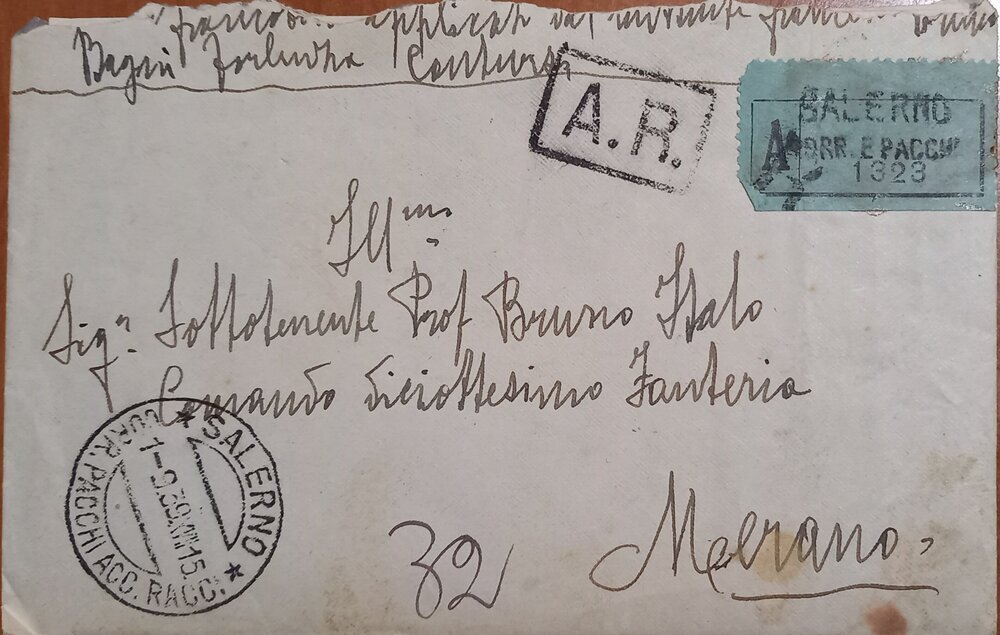 applicati dal mittente
A.R.
SALERNO
A CORR. E PACCHI
1323
Ill.mo
Sig.r Sottotenente Prof Bruno Italo
Comando diciottesimo Fanteria
32 Merano
SALERNO
CORR. PACCHI ACC. RACC.
1-9.39.XVII-15